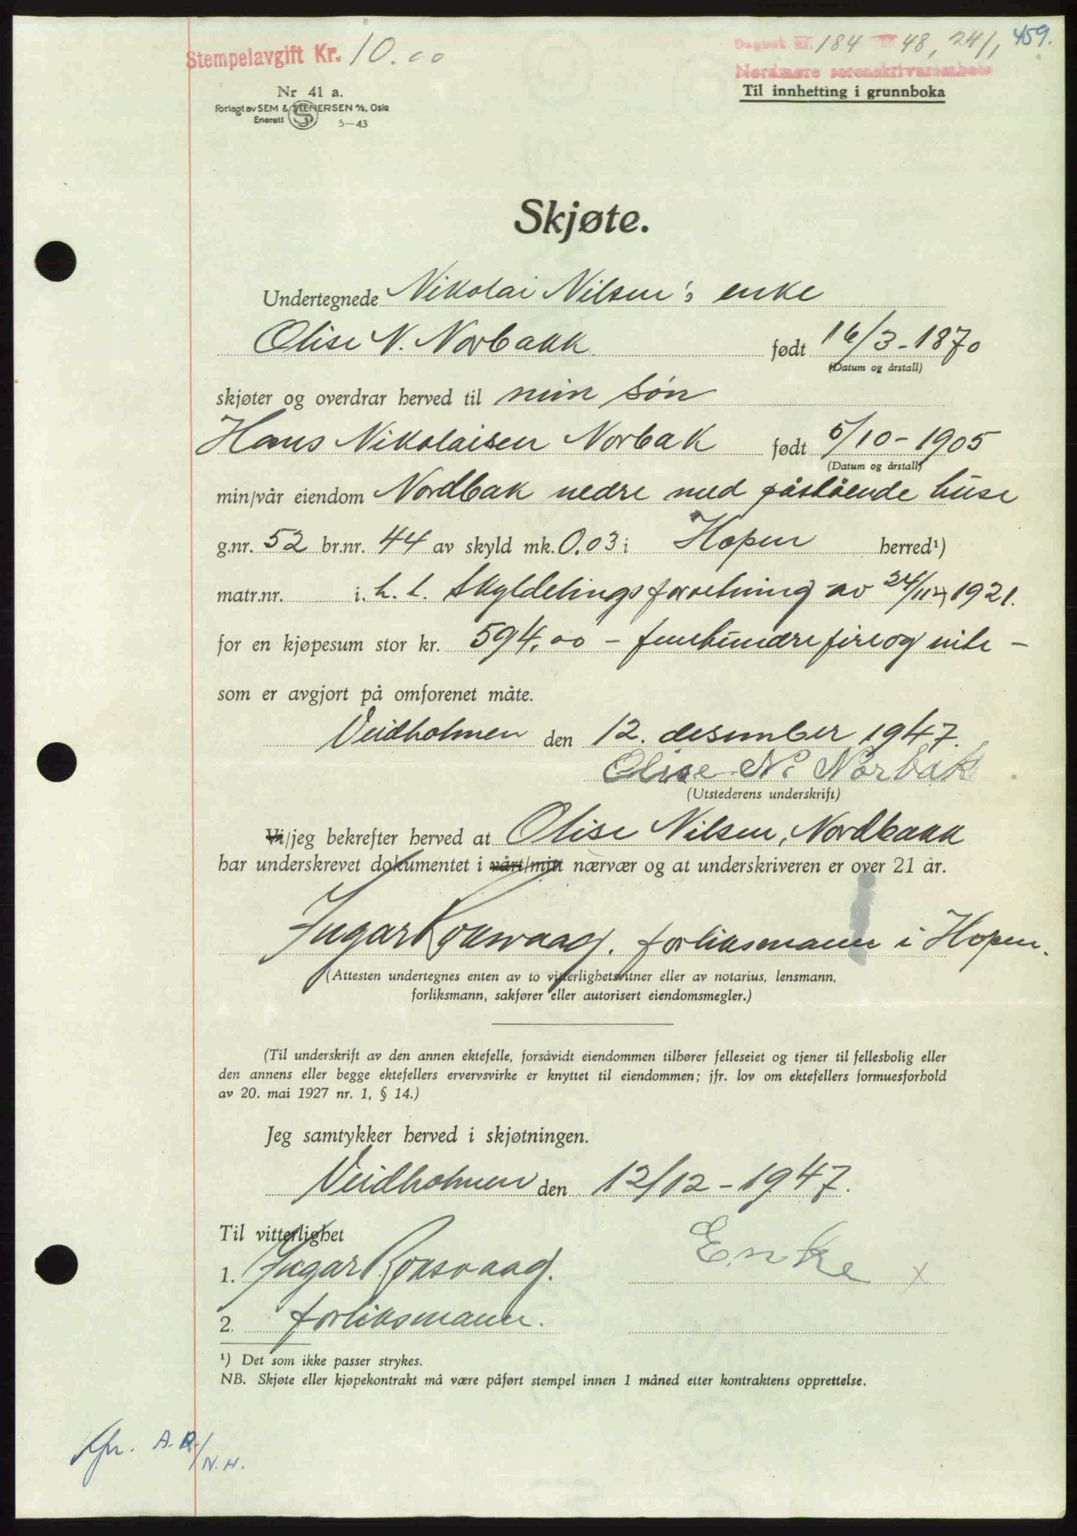 Stempelavgift Kr. 10.00
Dagbok nr. 184 19 48, 24/1, 459.
Nordmøre sorenskriverembete
Til innhefting i grunnboka
Nr 41 a.
Forlagt av SEM & STENERSEN A/S, Oslo
Enerett 5-43
Skjøte.
Undertegnede Nikolai Nilsen's enke
Olise N. Norbakk født 16/3-1870
(Datum og årstall)
skjøter og overdrar herved til min søn
Hans Nikolaisen Norbak født 5/10-1905
(Datum og årstall)
min/vår eiendom Nordbak nedre med påstående huse
g.nr. 52 br.nr. 44 av skyld mk. 0.03 i Hopen herred¹)
matr.nr. i. h. t. Skyldelingsforretning av 24/11 1921.
for en kjøpesum stor kr. 594,00 - femhundre fire og niti -
som er avgjort på omforenet måte.
Veidholmen den 12. desember 1947.
Olise N. Norbak
(Utstederens underskrift)
Vi/jeg bekrefter herved at Olise Nilsen, Nordbakk
har underskrevet dokumentet i vårt/mitt nærvær og at underskriveren er over 21 år.
Ingar Roksvaag. forliksmann i Hopen.
(Attesten undertegnes enten av to vitterlighetsvitner eller av notarius, lensmann,
forliksmann, sakfører eller autorisert eiendomsmegler.)
(Til underskrift av den annen ektefelle, forsåvidt eiendommen tilhører felleseiet og tjener til fellesbolig eller
den annens eller begge ektefellers ervervsvirke er knyttet til eiendommen; jfr. lov om ektefellers formuesforhold
av 20. mai 1927 nr. 1, § 14.)
Jeg samtykker herved i skjøtningen.
Veidholmen den 12/12-1947.
Til vitterlighet
Enke x
1. Ingar Roksvaag.
2. forliksmann.
¹) Det som ikke passer strykes.
NB. Skjøte eller kjøpekontrakt må være påført stempel innen 1 måned etter kontraktens opprettelse.
A.R/N.H.